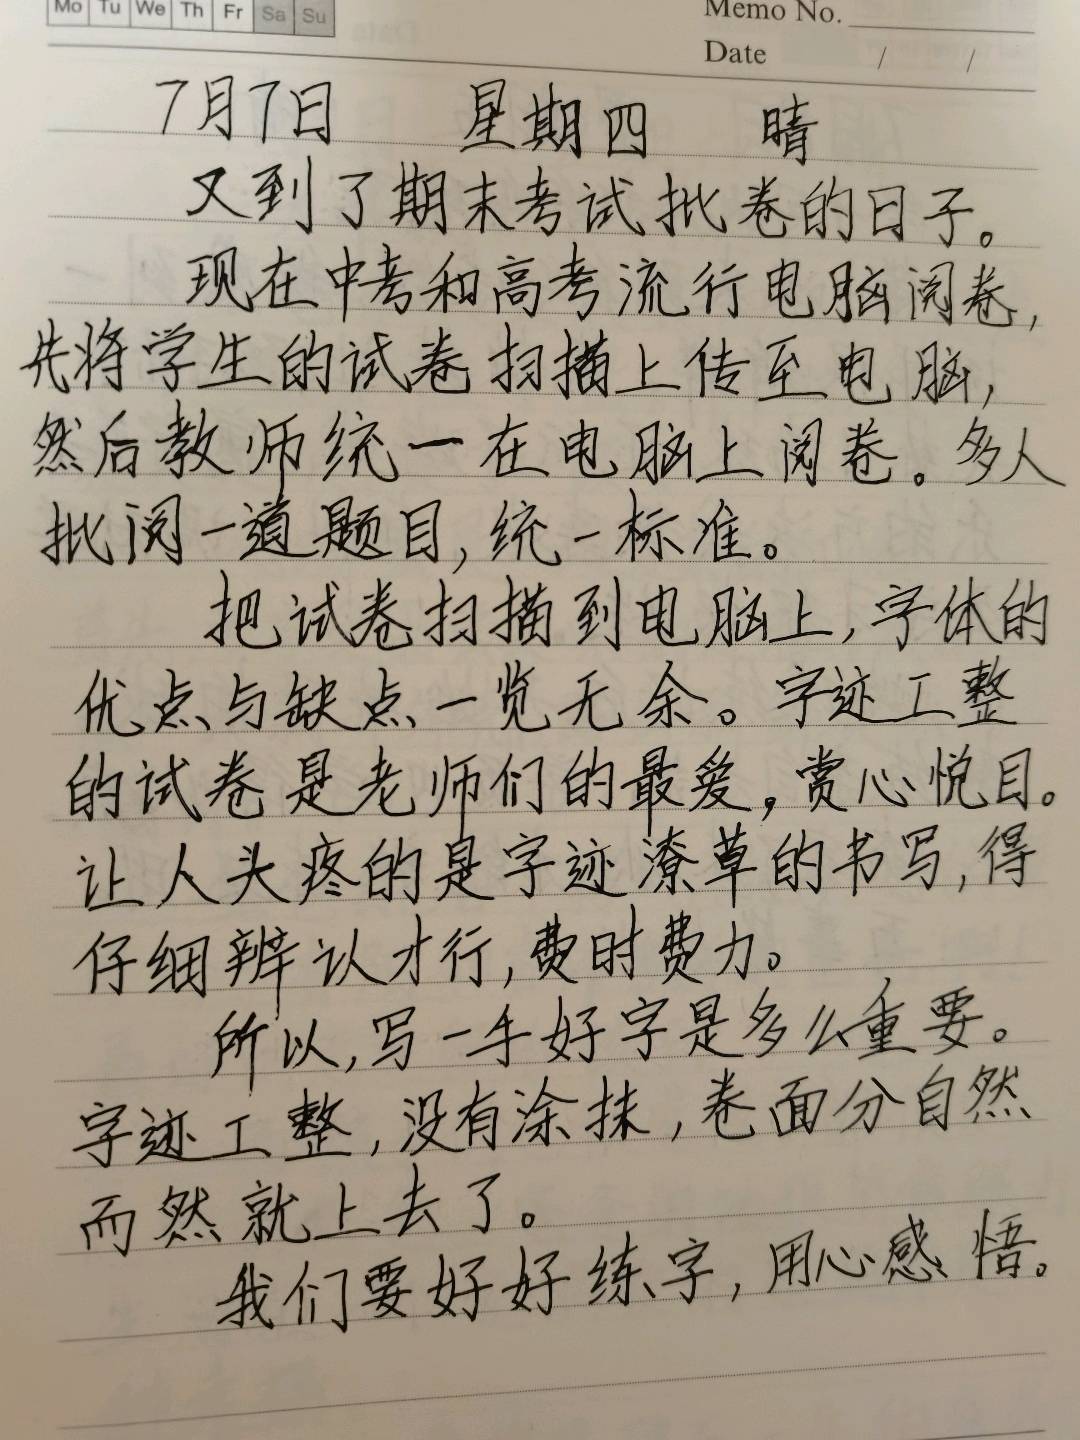 Mo Tu We Th Fr Sa Su
Memo No.
Date / /
7月7日 星期四 晴
又到了期末考试批卷的日子。
现在中考和高考流行电脑阅卷,
先将学生的试卷扫描上传至电脑,
然后教师统一在电脑上阅卷。多人
批阅一道题目,统一标准。
把试卷扫描到电脑上,字体的
优点与缺点一览无余。字迹工整
的试卷是老师们的最爱,赏心悦目。
让人头疼的是字迹潦草的书写,得
仔细辨认才行,费时费力。
所以,写一手好字是多么重要。
字迹工整,没有涂抹,卷面分自然
而然就上去了。
我们要好好练字,用心感悟。